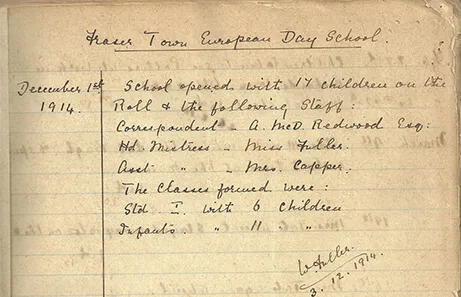 Fraser Town European Day School.
December 1st School opened with 17 children on the
1914. Roll & the following Staff:
Correspondent - A. McD. Redwood Esq:
Hd. Mistress - Miss Fuller.
Asst " - Mrs. Capper.
The Classes formed were:
Std I. with 6 children
Infants. " 11 "
W. Fuller.
3.12.1914.